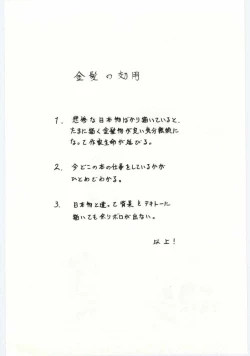 金髪の効用
1. 悲惨な日本物ばかり描いていると、
たまに描く金髪物が良い気分転換に
なって作家生命が延びる。
2. 今どこの本の仕事をしているかが
ひとめでわかる。
3. 日本物と違って背景をテキトーに
描いてもボリボロが出ない。
以上!